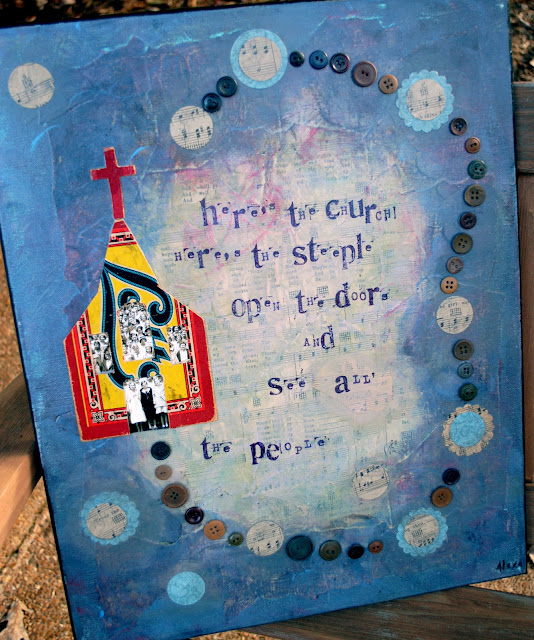 here's the church!
here's the steeple
open the doors
and
see all
the people